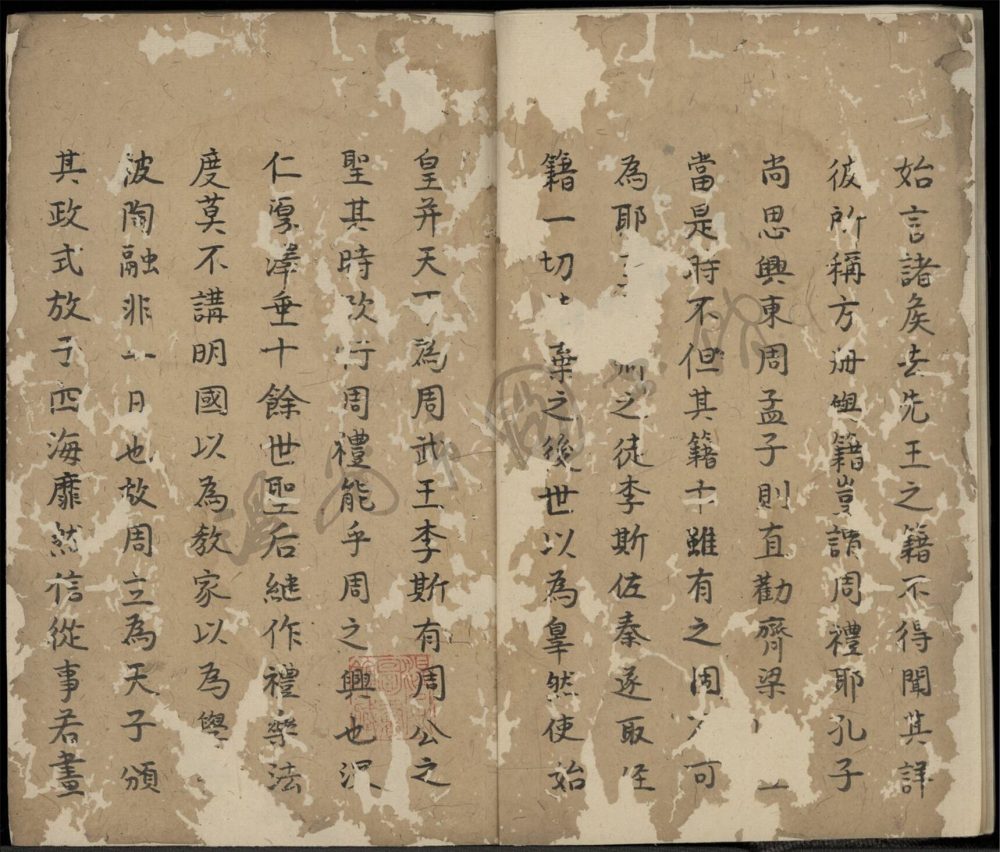 始言諸矦去先王之籍不得聞其詳
彼所稱方册與籍豈謂周禮耶孔子
尚思興東周孟子則直勸齊梁
當是時不但其籍亡雖有之固不可
為耶 之徒李斯佐秦遂取
籍一切 棄之後世以為辠然使始
皇并天下為周武王李斯有周公之
聖其時欲行周禮能乎周之興也深
仁厚澤垂十餘世聖后継作禮樂法
度莫不講明國以為教家以為學
波陶融非一日也故周立為天子頒
其政式放于四海靡然信從事若畫